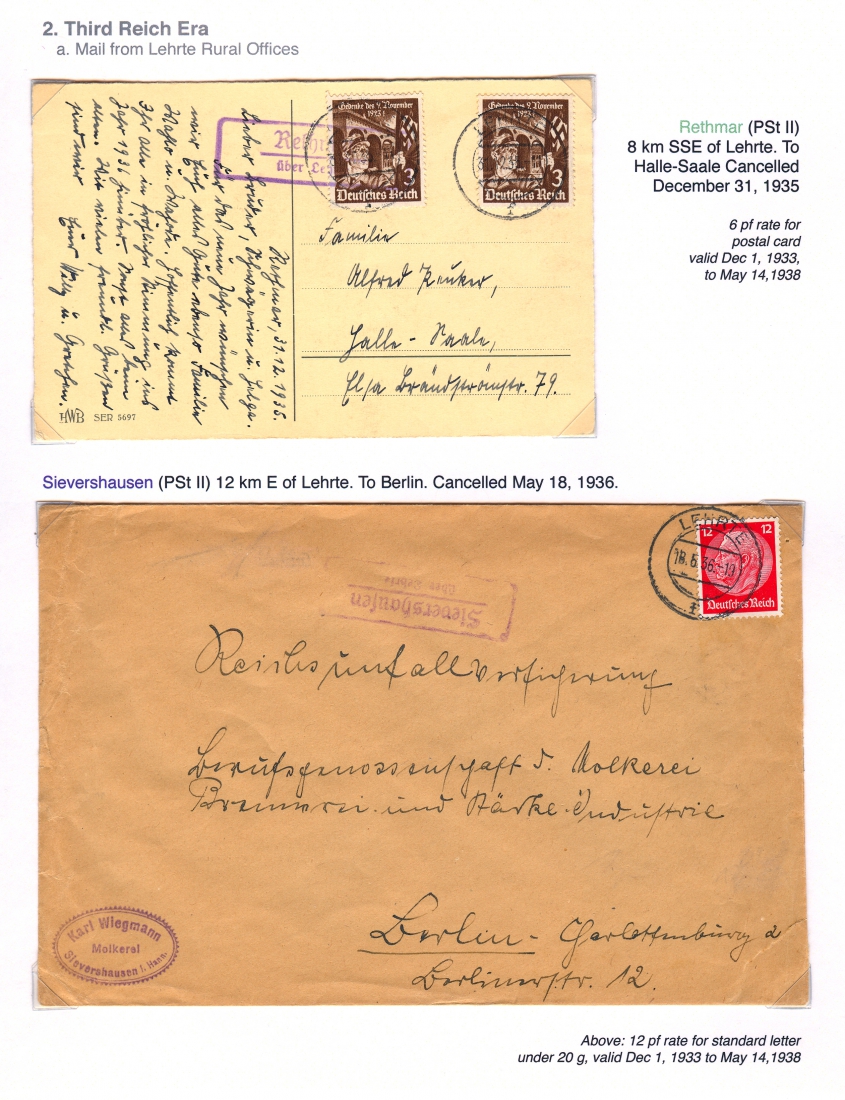 2. Third Reich Era
a. Mail from Lehrte Rural Offices
Rethmar (PSt II)
8 km SSE of Lehrte. To
Halle-Saale Cancelled
December 31, 1935
6 pf rate for
postal card
valid Dec 1, 1933,
to May 14,1938
Gedenke des 9. November
1923!
3
Deutsches Reich
Gedenke des 9. November
1923!
3
Deutsches Reich
über
Rethmar, 31.12.1935.
Lieber Bruder, Schwägerin u. Helga.
Für das neue Jahr wünschen
wir Euch alles Gute ebenso Familie
Hoffentlich kommt
Ihr alle in fröhlicher Stimmung ins
Jahr 1936 hinüber.
Wir vielen freundl. Grüßen
Euer Willy u. Gretchen.
Familie
Alfred
Halle - Saale,
Elsa Brändströmstr. 79.
HWB SER 5697
Sievershausen (PSt II) 12 km E of Lehrte. To Berlin. Cancelled May 18, 1936.
LEHRTE
18.5.36.-10
12 12
Deutsches Reich
Sievershausen
über Lehrte
Reichsunfallversicherung
Berufsgenossenschaft d. Molkerei
Brennerei und Stärke-Industrie
Berlin- Charlottenburg 2
Berlinerstr. 12.
Karl Wiegmann
Molkerei
Sievershausen i. Hann.
Above: 12 pf rate for standard letter
under 20 g, valid Dec 1, 1933 to May 14,1938